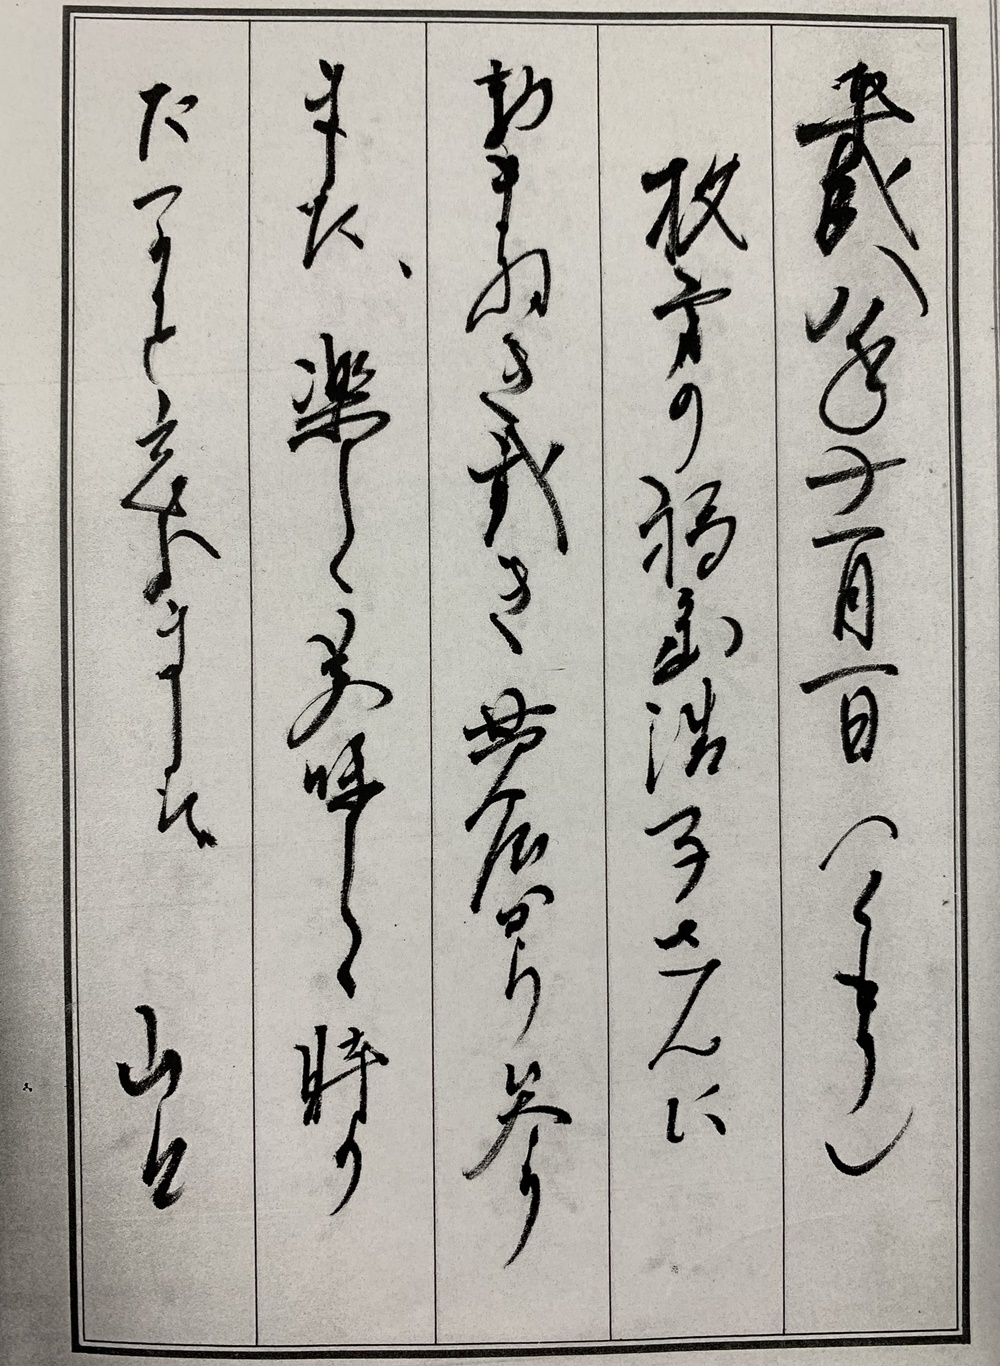 八年十一月一日(くもり)
枚方の福島浩子さんに
まねき戴き 参り
ました、楽しく美味しく時の
たつ忘れました 山